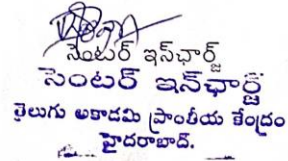 సెంటర్ ఇన్‌ఛార్జ్
సెంటర్ ఇన్‌ఛార్జ్
తెలుగు అకాడమి ప్రాంతీయ కేంద్రం
హైదరాబాద్.